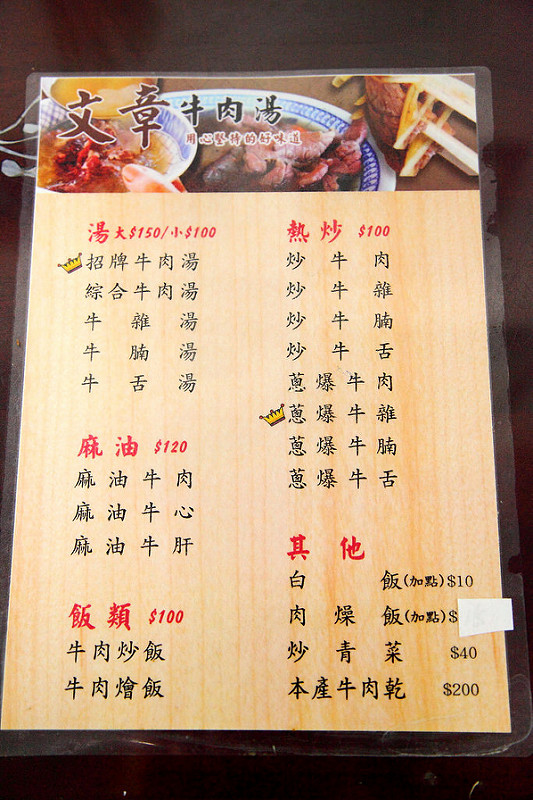 文章牛肉湯
用心堅持的好味道
湯 大$150/小$100
招牌牛肉湯
綜合牛肉湯
牛雜湯
牛腩湯
牛舌湯
麻油 $120
麻油牛肉
麻油牛心
麻油牛肝
飯類 $100
牛肉炒飯
牛肉燴飯
熱炒 $100
炒牛肉
炒牛雜
炒牛腩
炒牛舌
蔥爆牛肉
蔥爆牛雜
蔥爆牛腩
蔥爆牛舌
其他
白飯(加點)$10
肉燥飯(加點)$
炒青菜 $40
本產牛肉乾 $200